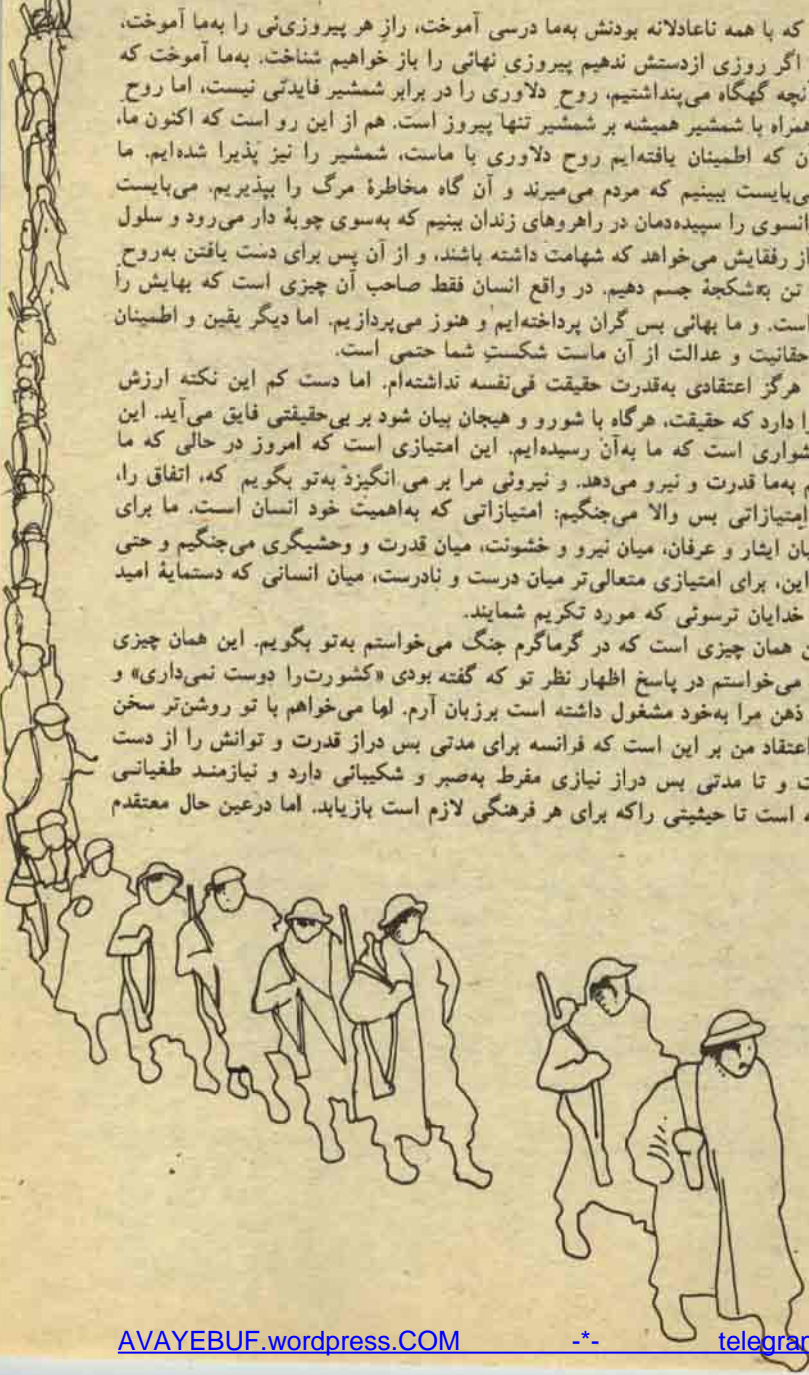 که با همه ناعادلانه بودنش به‌ما درسی آموخت، رازِ هر پیروزی‌ئی را به‌ما آموخت،
اگر روزی ازدستش ندهیم پیروزی نهائی را باز خواهیم شناخت. به‌ما آموخت که
نچه گهگاه می‌پنداشتیم، روحِ دلاوری را در برابر شمشیر فایدتی نیست، اما روحِ
همراه با شمشیر همیشه بر شمشیر تنها پیروز است. هم از این رو است که اکنون ما،
ن که اطمینان یافته‌ایم روح دلاوری با ماست، شمشیر را نیز پذیرا شده‌ایم. ما
می‌بایست ببینیم که مردم می‌میرند و آن گاه مخاطرهٔ مرگ را بپذیریم. می‌بایست
انسوی را سپیده‌دمان در راهروهای زندان ببینیم که به‌سوی چوبهٔ دار می‌رود و سلول
از رفقایش می‌خواهد که شهامت داشته باشند، و از آن پس برای دست یافتن به‌روح
تن به‌شکنجهٔ جسم دهیم. در واقع انسان فقط صاحب آن چیزی است که بهایش را
است. و ما بهائی بس گران پرداخته‌ایم و هنوز می‌پردازیم. اما دیگر یقین و اطمینان
حقانیت و عدالت از آن ماست شکستِ شما حتمی است.
هرگز اعتقادی به‌قدرت حقیقت فی‌نفسه نداشته‌ام. اما دست کم این نکته ارزش
را دارد که حقیقت، هرگاه با شورو و هیجان بیان شود بر بی‌حقیقتی فایق می‌آید. این
شواری است که ما به‌آن رسیده‌ایم. این امتیازی است که امروز در حالی که ما
م به‌ما قدرت و نیرو می‌دهد. و نیروئی مرا بر می‌انگیزد به‌تو بگویم که، اتفاق را،
امتیازاتی بس والا می‌جنگیم: امتیازاتی که به‌اهمیت خود انسان است. ما برای
یان ایثار و عرفان، میان نیرو و خشونت، میان قدرت و وحشیگری می‌جنگیم و حتی
این، برای امتیازی متعالی‌تر میان درست و نادرست، میان انسانی که دستمایهٔ امید
خدایان ترسوئی که مورد تکریم شمایند.
ن همان چیزی است که در گرماگرم جنگ می‌خواستم به‌تو بگویم. این همان چیزی
می‌خواستم در پاسخ اظهار نظر تو که گفته بودی «کشورت‌را دوست نمی‌داری» و
ذهن مرا به‌خود مشغول داشته است برزبان آرم. اما می‌خواهم با تو روشن‌تر سخن
اعتقاد من بر این است که فرانسه برای مدتی بس دراز قدرت و توانش را از دست
ت و تا مدتی بس دراز نیازی مفرط به‌صبر و شکیبائی دارد و نیازمند طغیانی
ه است تا حیثیتی راکه برای هر فرهنگی لازم است بازیابد. اما درعین حال معتقدم
AVAYEBUF.wordpress.COM -*- telegram